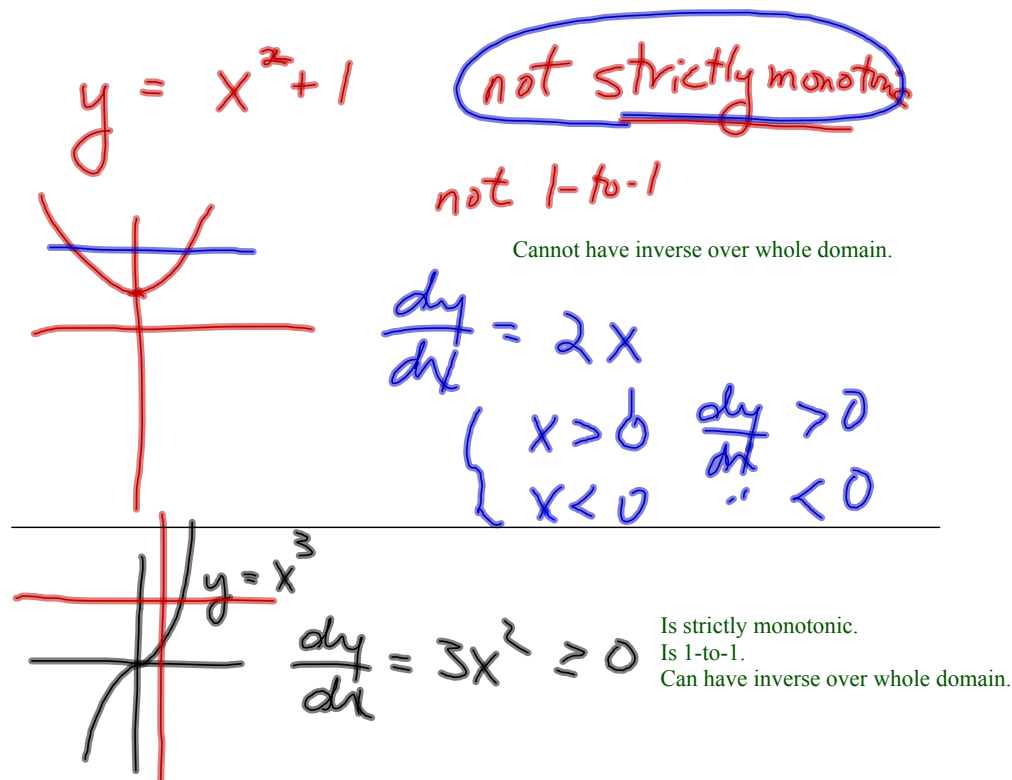 y = x² + 1
not strictly monotonic
not 1-to-1
Cannot have inverse over whole domain.
dy/dx = 2x
x > 0 dy/dx > 0
x < 0 " < 0
y = x³
dy/dx = 3x² ≥ 0
Is strictly monotonic.
Is 1-to-1.
Can have inverse over whole domain.